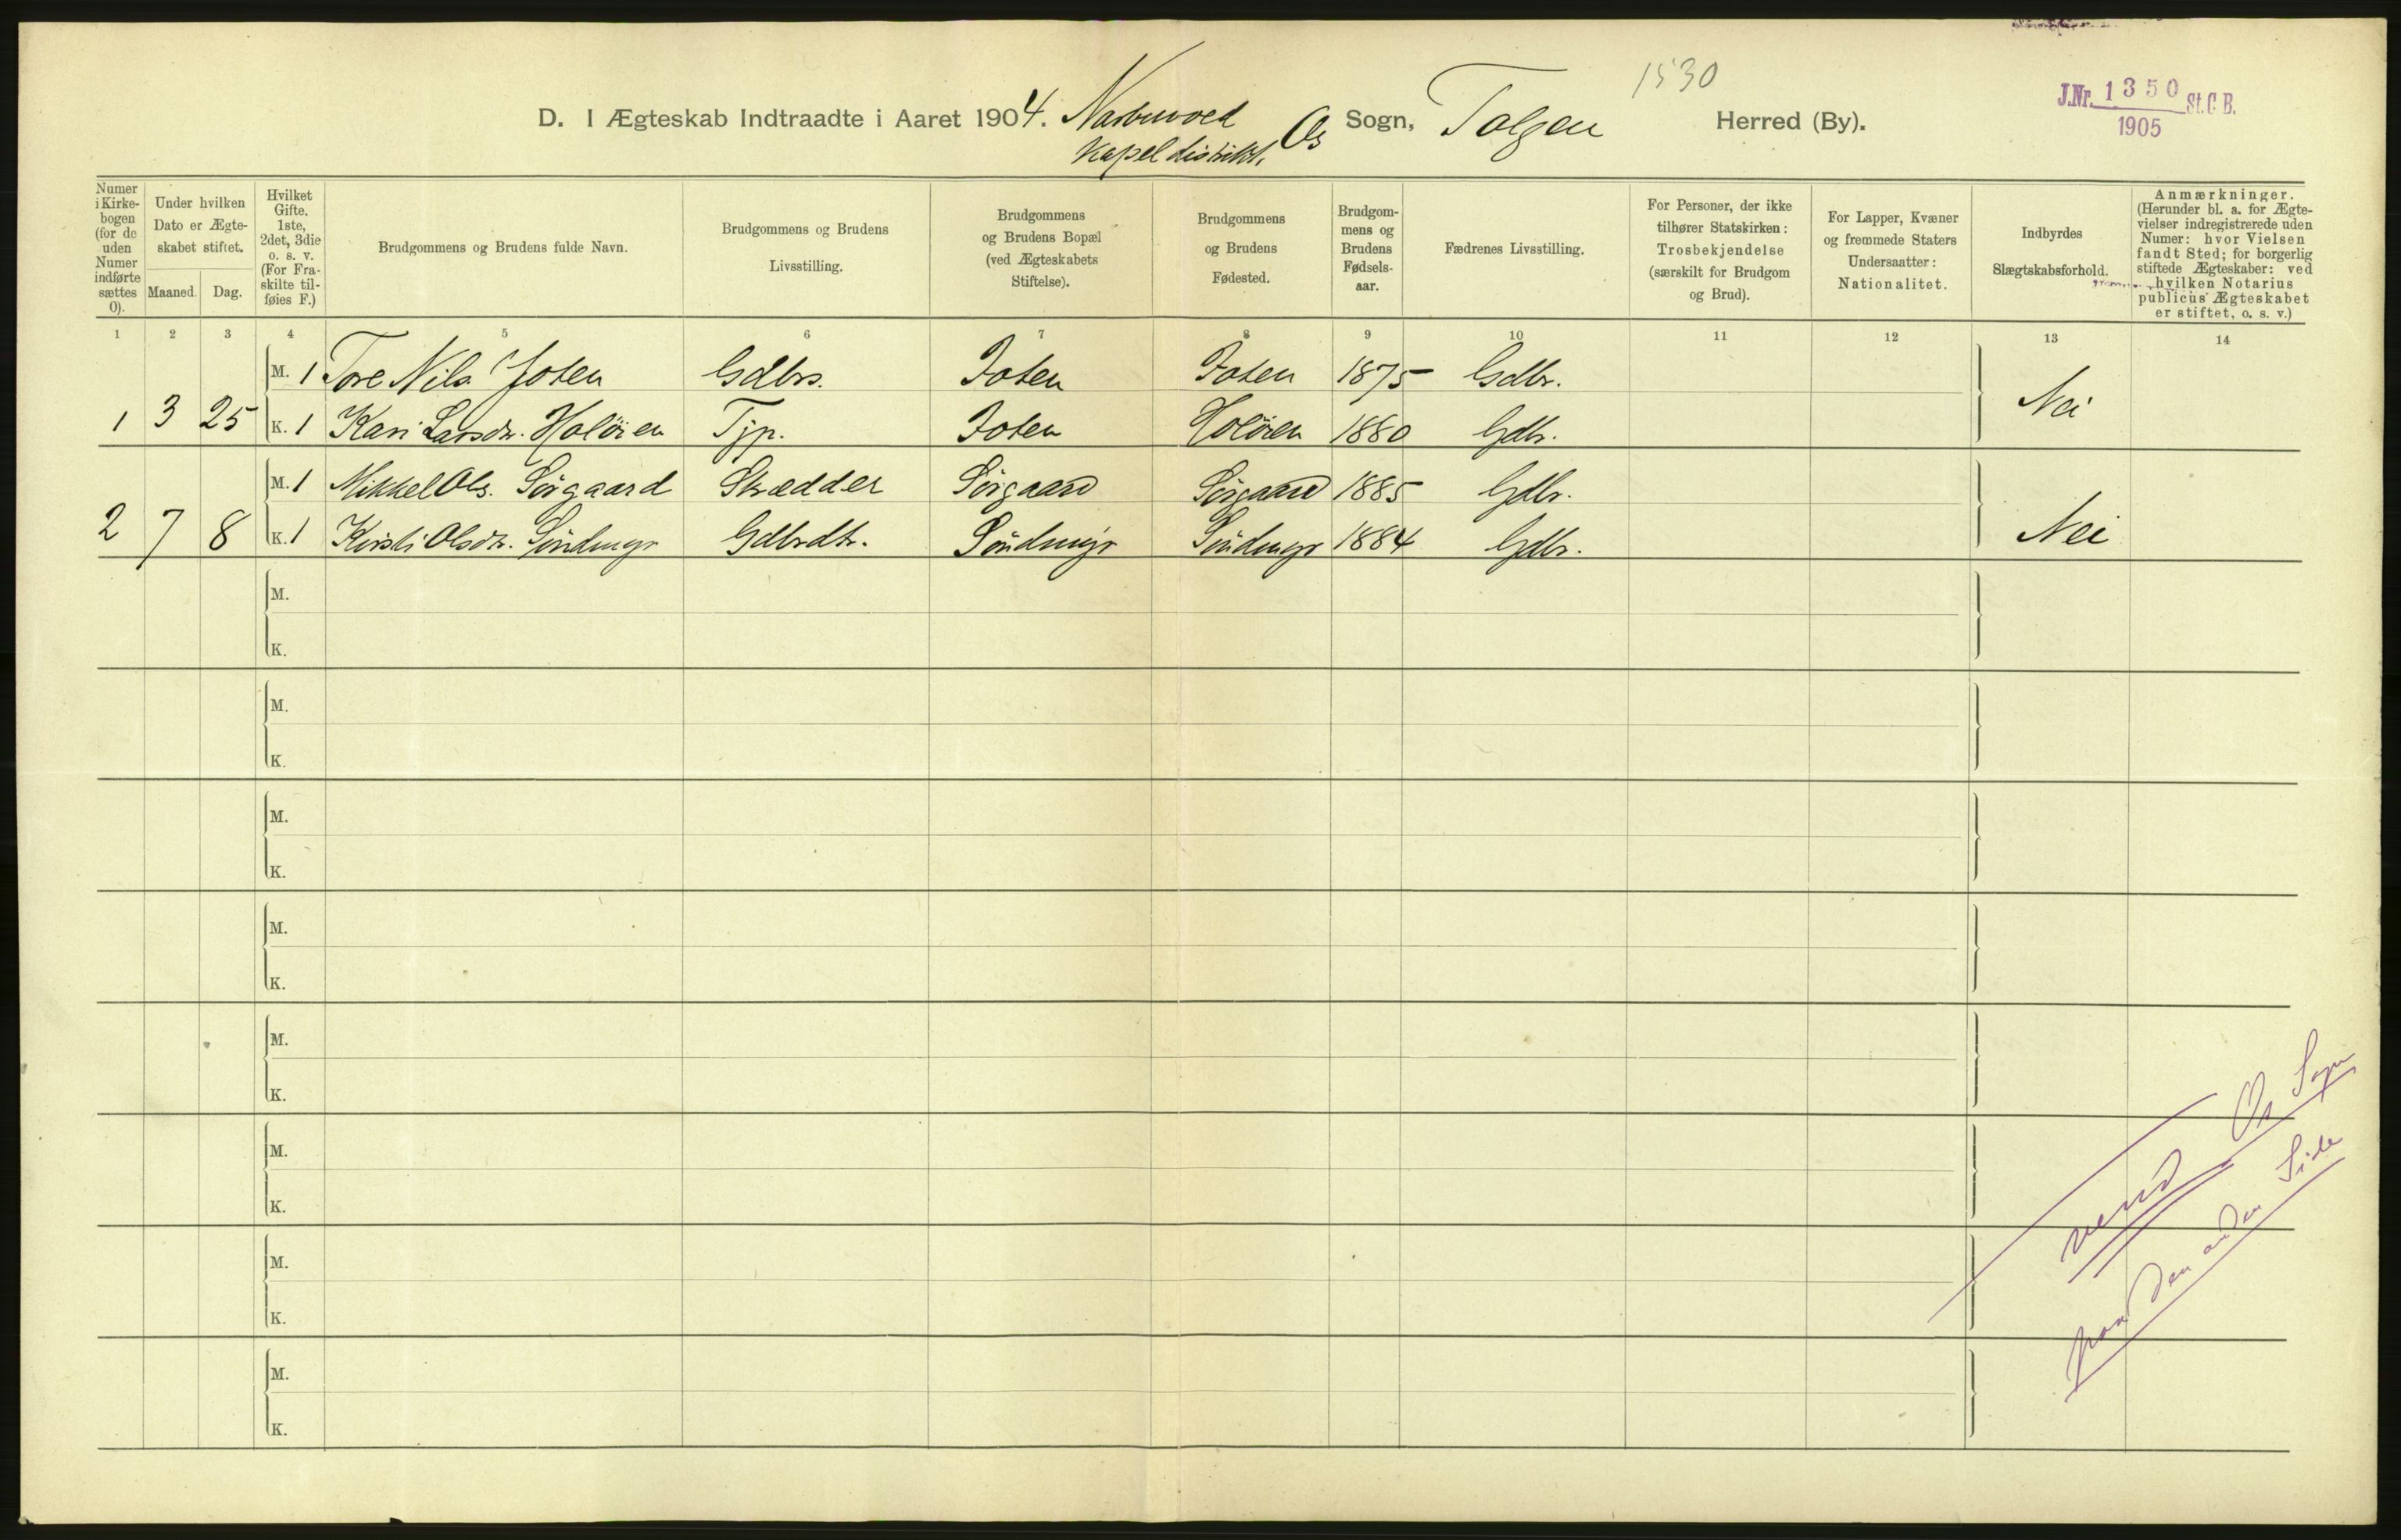 1530
J.Nr. 1350 St. C. B.
1905
D. I Ægteskab Indtraadte i Aaret 1904. Narbuvoed Os Sogn, Tolgen Herred (By).
Kapeldistrikt.
Numer i Kirkebogen (for de uden Numer indførte sættes 0).
Under hvilken Dato er Ægteskabet stiftet.
Maaned. Dag.
Hvilket Gifte. 1ste, 2det, 3die o. s. v. (For Fraskilte tilføies F.)
Brudgommens og Brudens fulde Navn.
Brudgommens og Brudens Livsstilling.
Brudgommens og Brudens Bopæl (ved Ægteskabets Stiftelse).
Brudgommens og Brudens Fødested.
Brudgommens og Brudens Fødselsaar.
Fædrenes Livsstilling.
For Personer, der ikke tilhører Statskirken: Trosbekjendelse (særskilt for Brudgom og Brud).
For Lapper, Kvæner og fremmede Staters Undersaatter: Nationalitet.
Indbyrdes Slægtskabsforhold.
Anmærkninger. (Herunder bl. a. for Ægtevielser indregistrerede uden Numer: hvor Vielsen fandt Sted; for borgerlig stiftede Ægteskaber: ved hvilken Notarius publicus Ægteskabet er stiftet, o. s. v.)
1 2 3 4 5 6 7 8 9 10 11 12 13 14
M. 1 Tore Nils. Joten Gdbrs. Joten Joten 1875 Gdbr.
1 3 25 K. 1 Kari Larsdr. Holöien Tjp. Joten Holöien 1880 Gdbr. Nei
M. 1 Mikkel Ols. Sörgaard Skrædder Sörgaard Sörgaard 1885 Gdbr.
2 7 8 K. 1 Kirsti Olsdr. Söndmyr Gdbrdtr. Söndmyr Söndmyr 1884 Gdbr. Nei
M.
K.
M.
K.
M.
K.
M.
K.
M.
K.
M.
K.
M.
K.
M.
K.
Os Sogn
vend
paa den anden Side